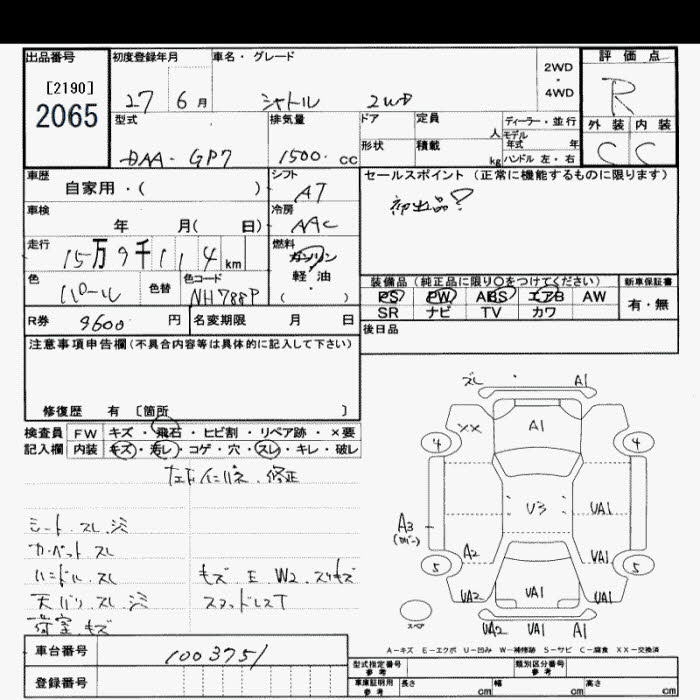 出品番号
[2190]
2065
初度登録年月
27 6月
車名・グレード
シャトル 2WD
2WD
・
4WD
評価点
R
外装 内装
C C
型式
DAA-GP7
排気量
1500 cc
ドア
定員
人
形状
積載
kg
ディーラー・並行
モデル
年式 年
ハンドル 左・右
車歴
自家用・( )
シフト
AT
セールスポイント (正常に機能するものに限ります)
初出品?
車検
年 月( 日)
冷房
AAC
走行
15万9千114km
燃料
ガソリン
軽・油
( )
色
パール
色替
色コード
NH788P
装備品 (純正品に限り○をつけてください)
PS PW ABS エアB AW
SR ナビ TV カワ
新車保証書
有・無
R券 9600 円
名変期限 月 日
後日品
注意事項申告欄(不具合内容等は具体的に記入して下さい)
修復歴 有 〔箇所 〕
検査員
記入欄
FW キズ・飛石・ヒビ割・リペア跡・×要
内装 キズ・汚レ・コゲ・穴・スレ・キレ・破レ
修正
シート.スレ.シミ
カーペットスレ
ハンドル.スレ
天バリ.スレ.シミ
荷室.キズ
モズ E W2 スリキズ
ズレ A1
XX A1
4 4
U3 UA1
A3
(カバー)
A2 UA1
5 5
UA2 UA1 UA1
スペア
UA2 UA1 A1
A-キズ E-エクボ U-凹み W-補修跡 S-サビ C-腐食 XX-交換済
車台番号
1003751
登録番号
型式指定番号
参考
類別区分番号
参考
車庫証明用
参考
長さ cm 幅 cm 高さ cm